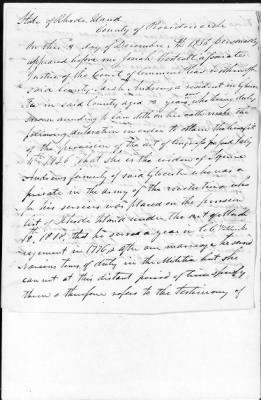 State of Rhode Island
County of Providence
On this day of December AD 1836 personally
appeared before me Josiah Westcott associate
Justice of the Court of Common Pleas within the
said county Sarah Andrews a resident in
in said County aged years, who being duly
sworn according to law doth on her oath make the
following declaration in order to obtain the benefit
of the provision of the act of Congress passed July
4th 1836 That she is the widow of Squire
Andrews formerly of said who was a
private in the army of the revolution who
for his services was placed on the pension
list of Rhode Island under the act of March
18, 1818, that he served a year in Col
regiment in 1776 & after our marriage he served
various tours of duty in the Militia but she
can not at this distant period of time specify
them & therefore refers to the testimony of